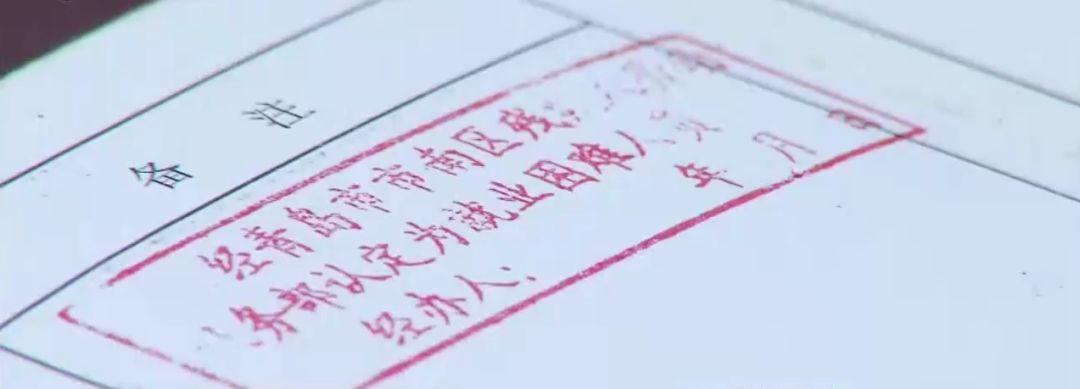 备注
经青岛市市南区残
务部认定为就业困难人员
年 月 日
经办人: